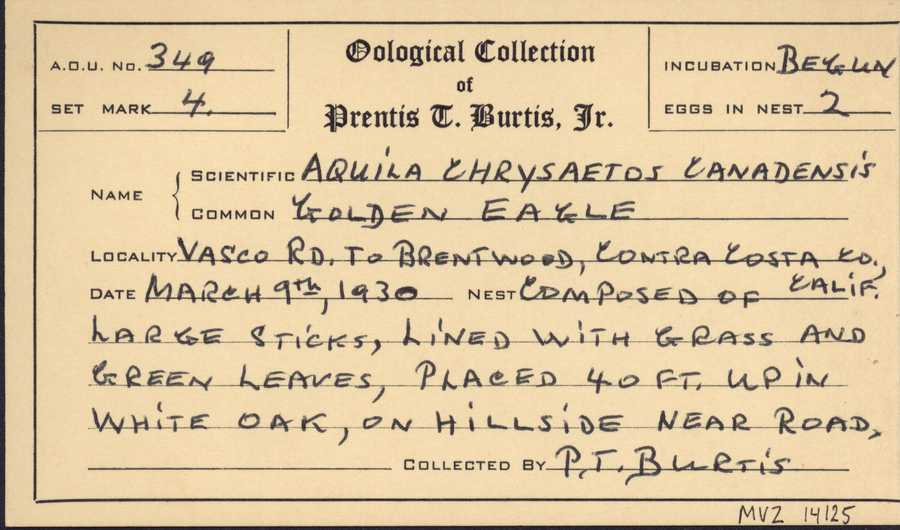 A.O.U. No. 349
Oological Collection
INCUBATION BEGUN
SET MARK 4.
of
EGGS IN NEST 2
Prentis T. Burtis, Jr.
NAME
SCIENTIFIC AQUILA CHRYSAETOS CANADENSIS
COMMON GOLDEN EAGLE
LOCALITY VASCO RD. TO BRENTWOOD, CONTRA COSTA CO.,
DATE MARCH 9th, 1930 NEST COMPOSED OF CALIF.
LARGE STICKS, LINED WITH GRASS AND
GREEN LEAVES, PLACED 40 FT. UP IN
WHITE OAK, ON HILLSIDE NEAR ROAD,
COLLECTED BY P.T. BURTIS
MVZ 14125